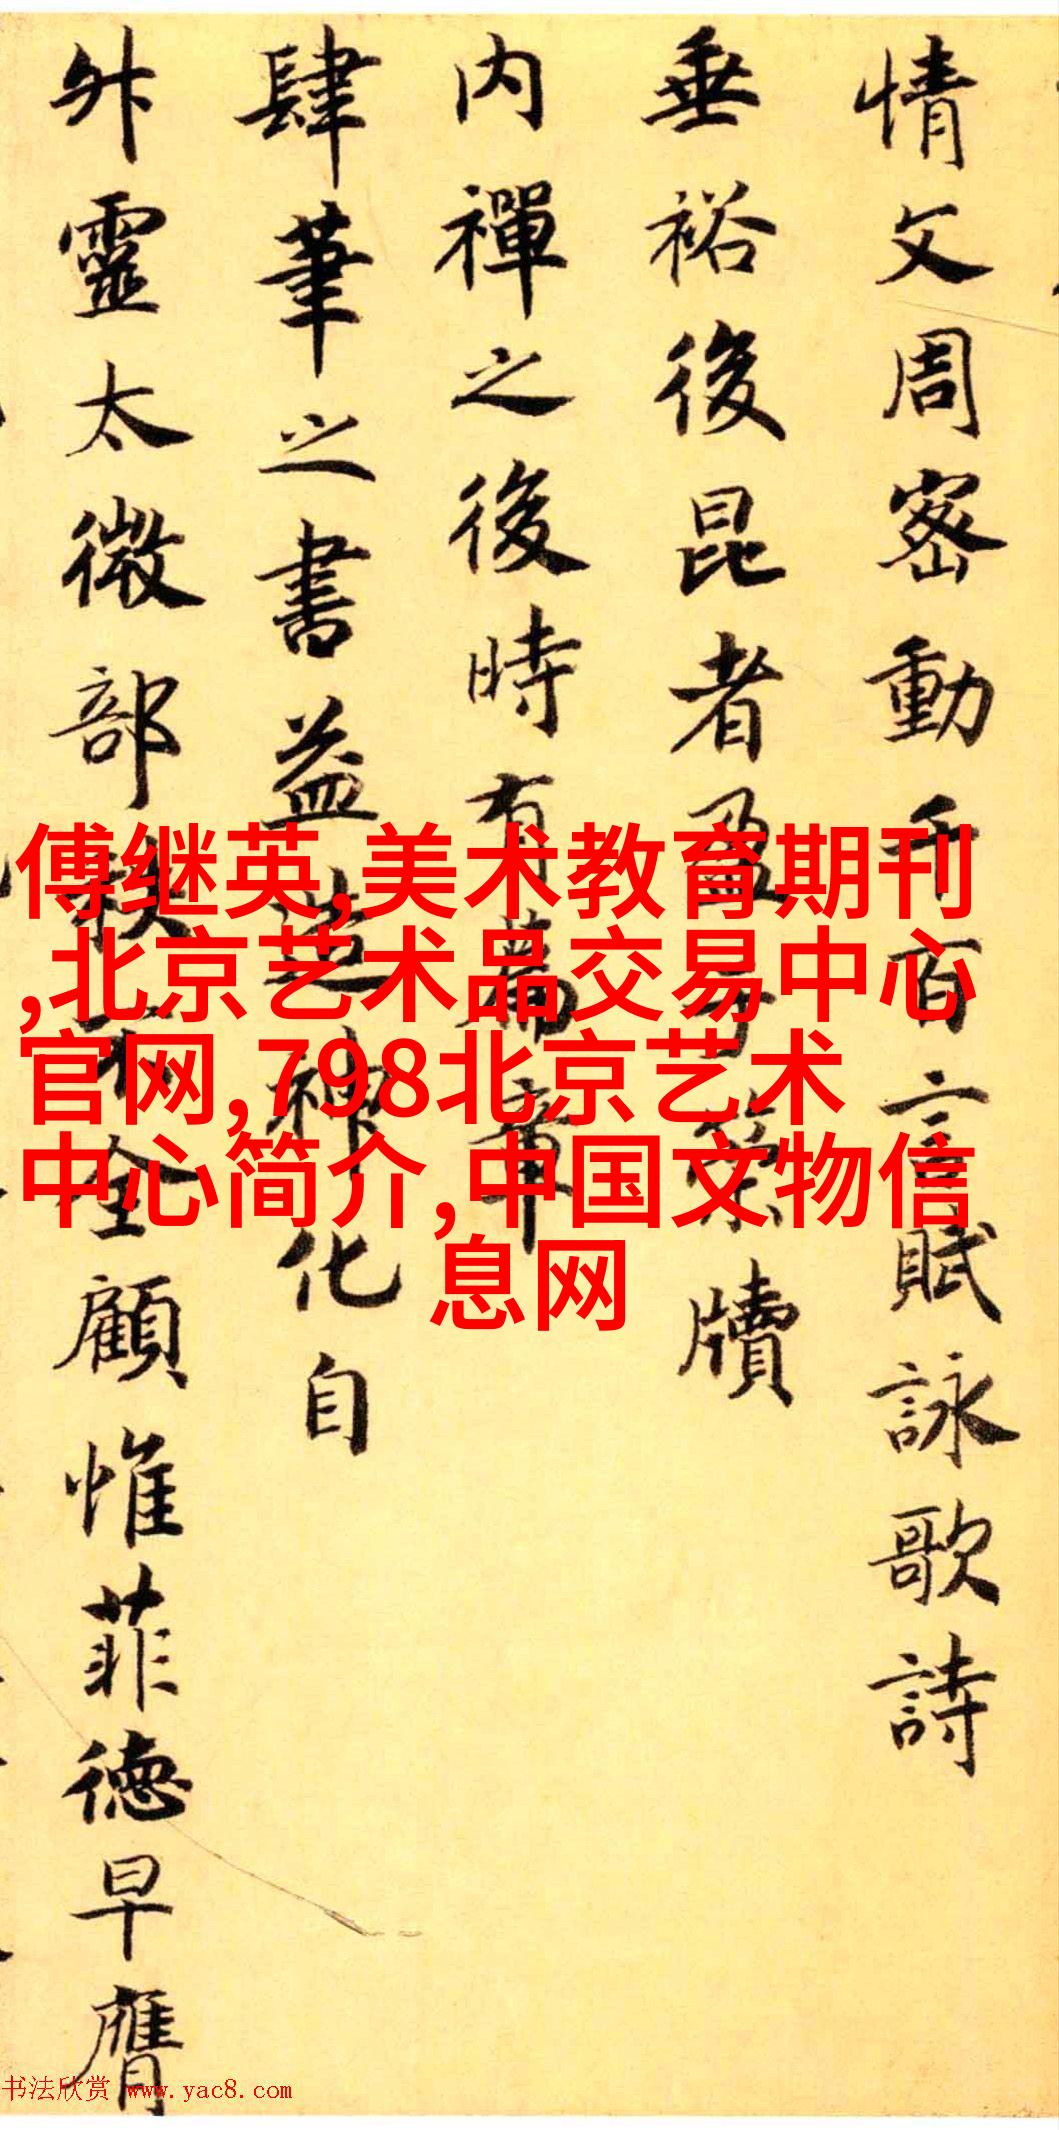 情文周密動千百言賦詠歌詩
垂裕後昆者盈于緗牘
内禪之後時有篇章
肆筆之書益造神化自
升靈太微部
全顧惟菲德早膺
傅继英,美术教育期刊
,北京艺术品交易中心
官网,798北京艺术
中心简介,中国文物信
息网
书法欣赏 www.yac8.com